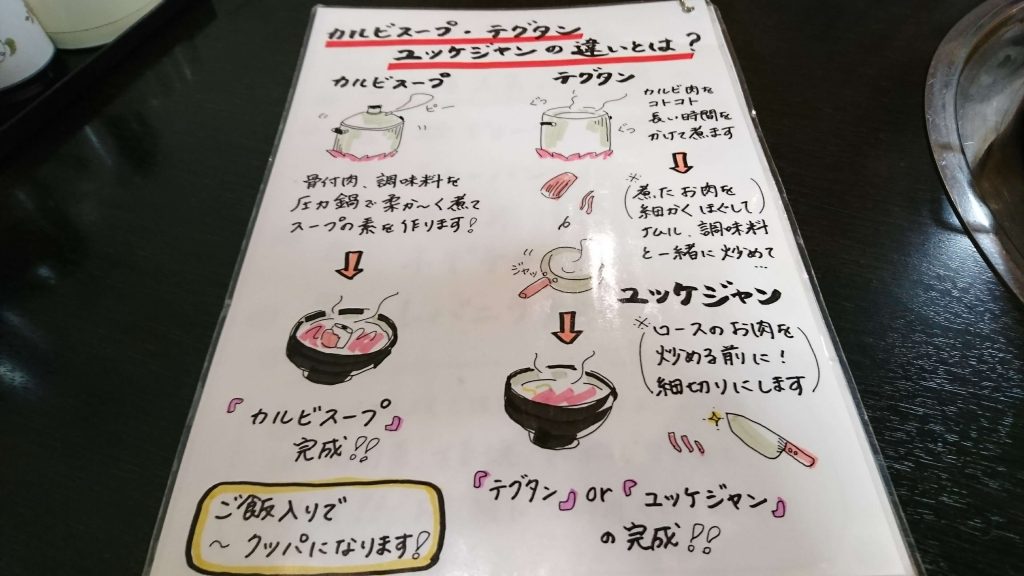 カルビスープ・テグタン
ユッケジャンの違いとは?
カルビスープ
ピー
骨付肉、調味料を
圧力鍋で柔か〜く煮て
スープの素を作ります!
『カルビスープ』
完成!!
ご飯入りで
〜クッパになります!
テグタン
ぐつ
ぐつ
カルビ肉を
コトコト
長い時間を
かけて煮ます
※
(煮たお肉を
細かくほぐして)
ナムル、調味料
と一緒に炒めて
...
ジャッ
ユッケジャン
※
(ロースのお肉を
炒める前に!
細切りにします)
『テグタン』or『ユッケジャン』
の完成!!